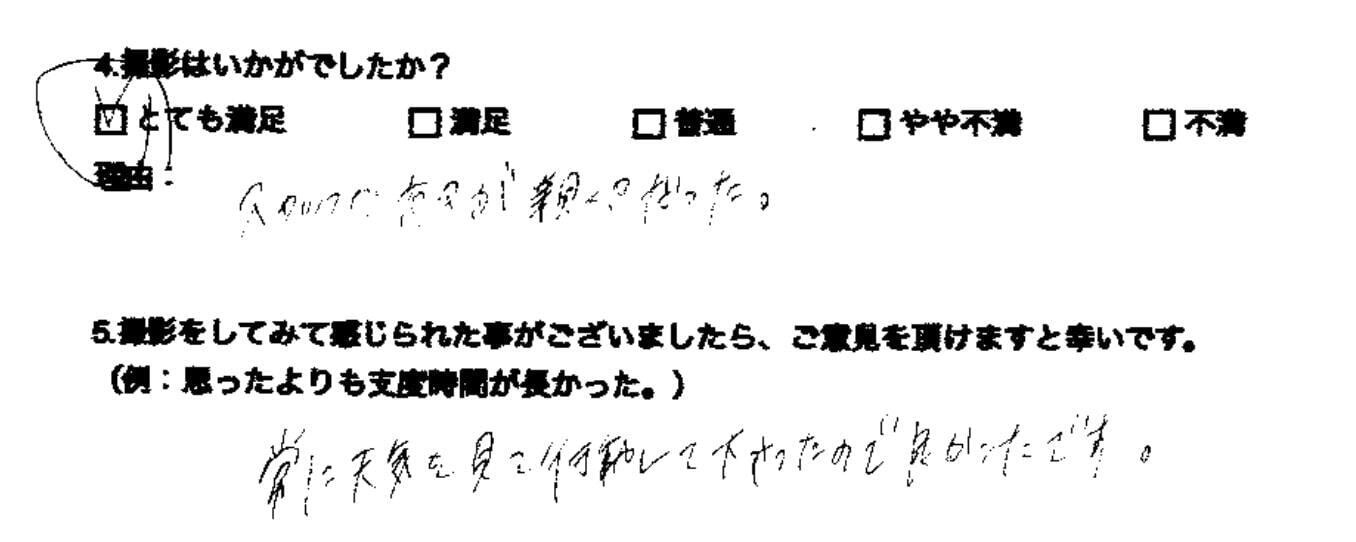 4.撮影はいかがでしたか？
☑とても満足 □満足 □普通 □やや不満 □不満
理由：
が親切だった。
5.撮影をしてみて感じられた事がございましたら、ご意見を頂けますと幸いです。
（例：思ったよりも支度時間が長かった。）
常に天気を見て行動して下さったので良かったです。